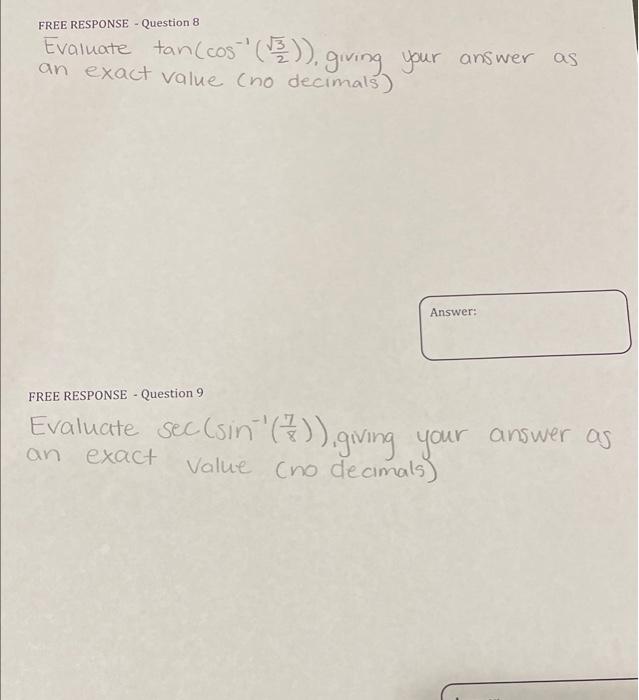 FREE RESPONSE - Question 8
Evaluate tan(cos⁻¹(√3/2)), giving your answer as
an exact value (no decimals)
Answer:
FREE RESPONSE - Question 9
Evaluate sec(sin⁻¹(7/8)), giving your answer as
an exact value (no decimals)